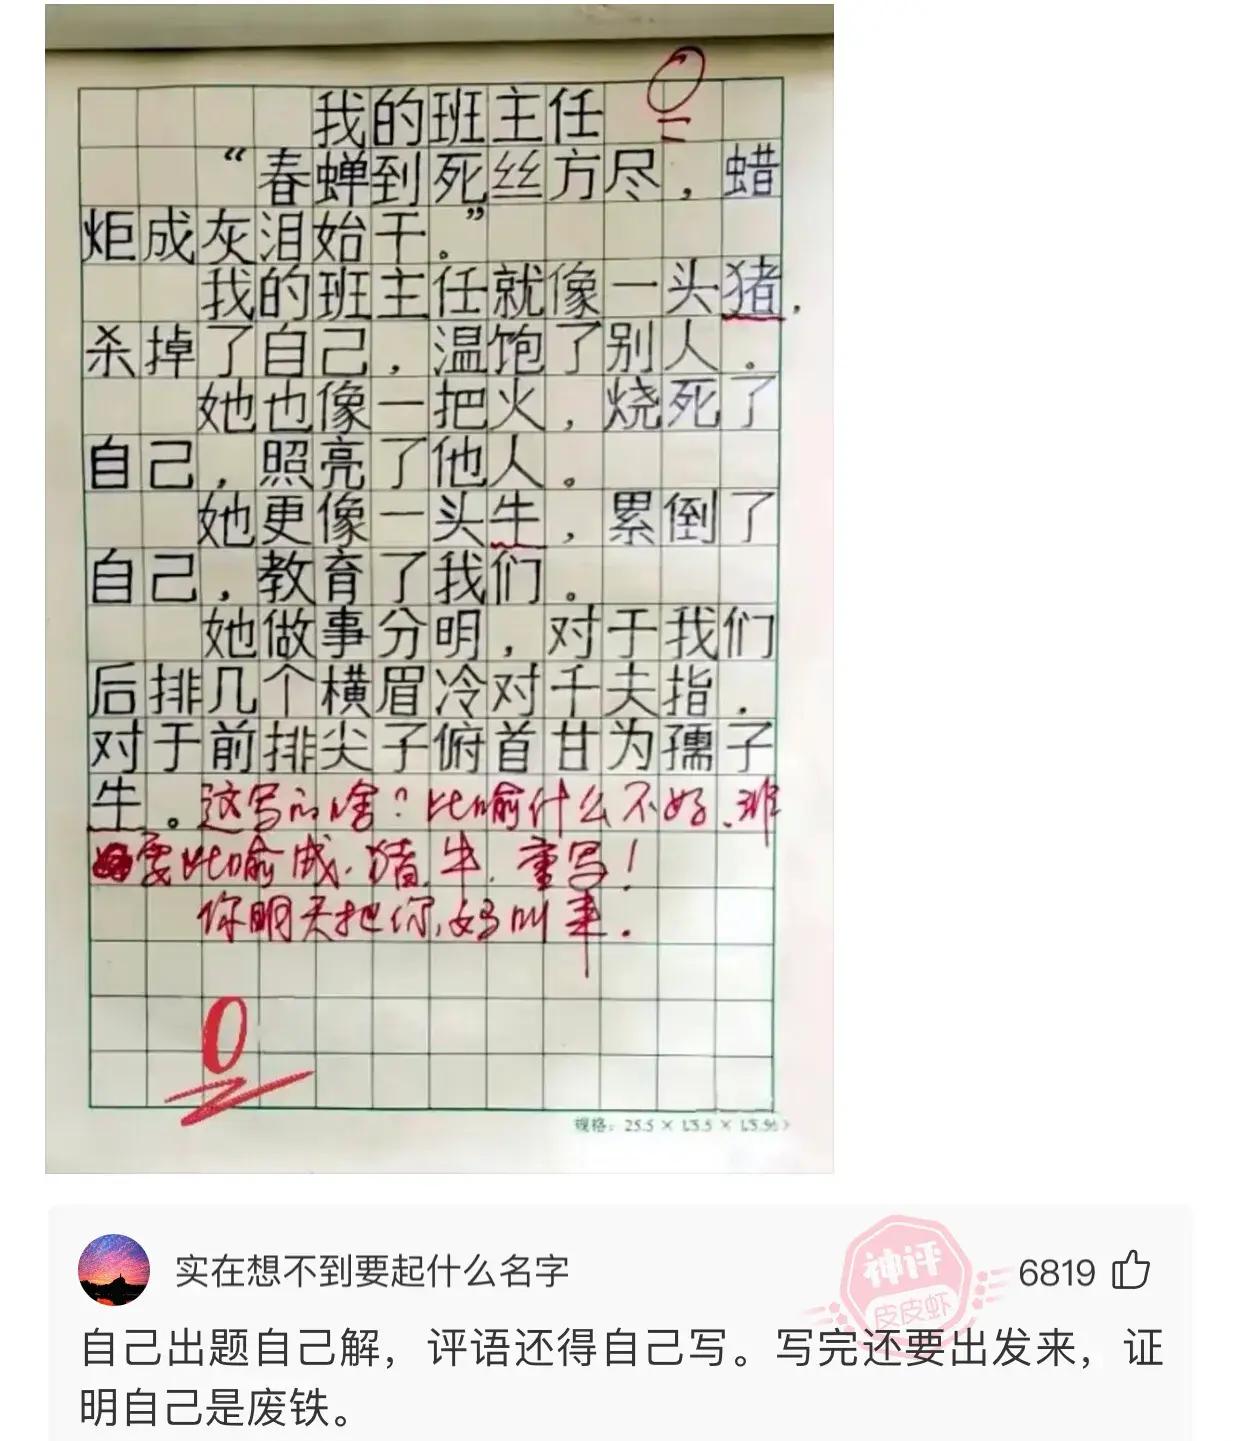 我的班主任
0
“春蝉到死丝方尽，蜡
炬成灰泪始干。”
我的班主任就像一头猪，
杀掉了自己，温饱了别人。
她也像一把火，烧死了
自己，照亮了他人。
她更像一头牛，累倒了
自己，教育了我们。
她做事分明，对于我们
后排几个横眉冷对千夫指．
对于前排尖子俯首甘为孺子
牛。这写的啥？比喻什么不好，非
要比喻成猪，牛，重写！
你明天把你妈叫来．
0
规格：25.5 ×
实在想不到要起什么名字
神评
皮皮虾
6819
自己出题自己解，评语还得自己写。写完还要出发来，证
明自己是废铁。